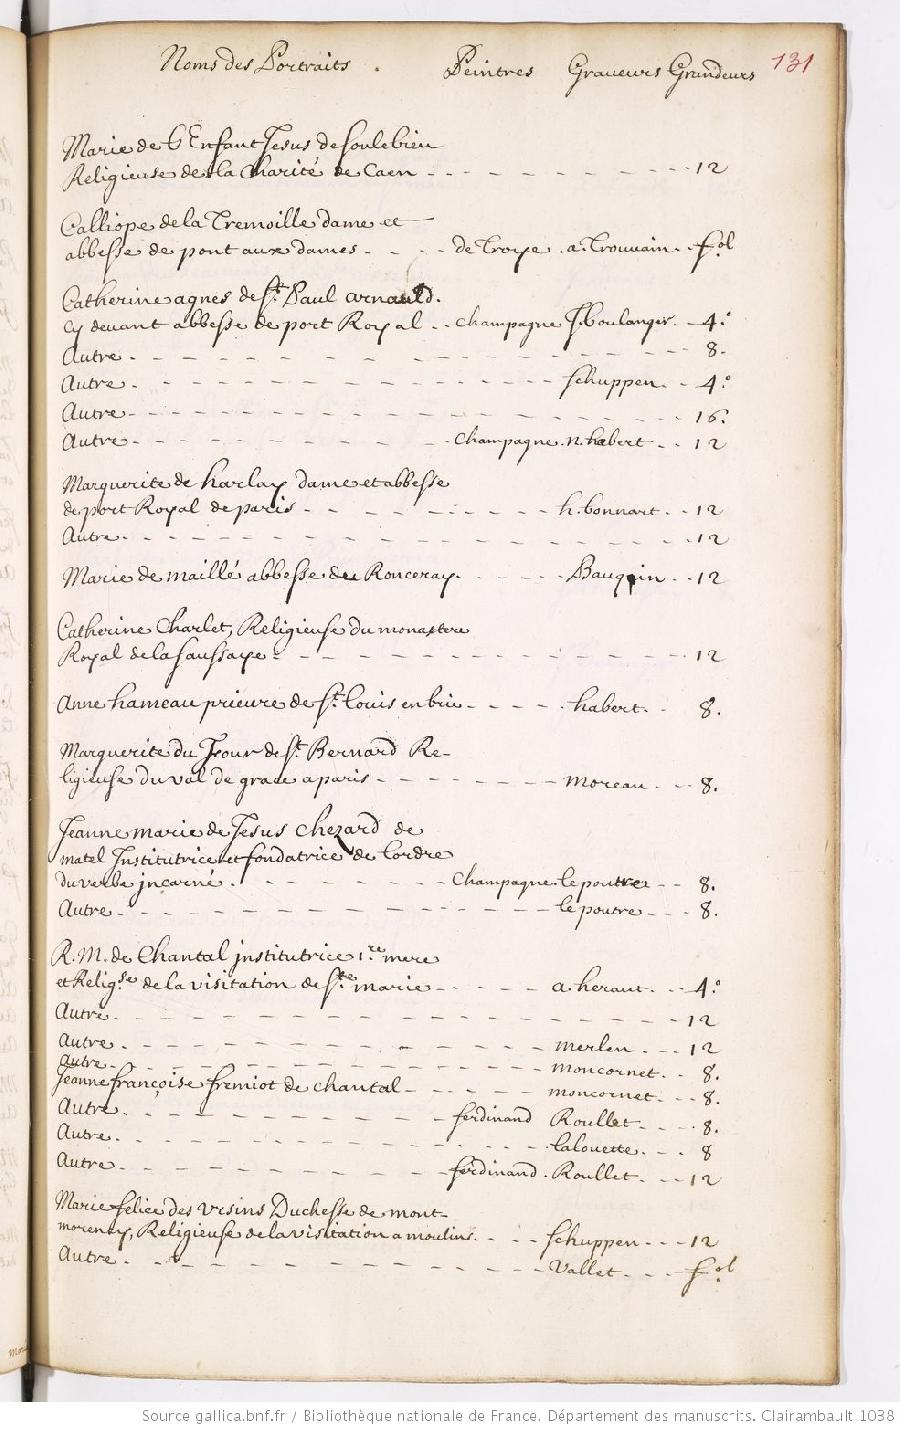 Noms des Portraits . Peintres Graveurs Grandeurs 131
Marie de l'Enfant Jesus de soulebieu
Religieuse de la Charité de Caen - - - - - - - 12
Calliope de la Tremoille dame et
abbesse de pont aux dames - - - de Troye . a. Trouvain . fol
Catherine agnes de St. Paul arnauld.
cy devant abbesse de port Royal - - Champagne J. boulanger . - 4.o
Autre - - - - - - - 8.
Autre - - - - - - - schuppen - - 4.o
Autre - - - - - - - 16.
Autre - - - - - - - Champagne . n. habert - - 12
Marguerite de harlay dame et abbesse
de port Royal de paris - - - - - - - h. bonnart - - 12
Autre - - - - - - - 12
Marie de maillé abbesse du Ronceray - - - - Bauquin - - 12
Catherine Charlet, Religieuse du monastere
Royal de la saussaye - - - - - - - 12
Anne hameau prieure de St. louis en brie - - - - habert . - 8.
Marguerite du Jour de St. Bernard Re-
ligieuse du val de grace a paris - - - - - - - moreau - - 8.
Jeanne marie de Jesus Chezard de
matel Institutrice et fondatrice de lordre
du verbe jncarné . - - - - - Champagne . le poutre - - 8.
Autre - - - - - - - le poutre - - - 8.
R. M. de Chantal jnstitutrice 1.re mere
et Relig.se de la visitation de Ste. marie - - - - - a. heraut - - 4.o
Autre - - - - - - - 12
Autre - - - - - - - merlen - - - 12
Autre - - - - - - - moncornet - - 8.
Jeanne françoise fremiot de Chantal - - - - moncornet - - 8.
Autre - - - - - ferdinand Roullet - - - 8.
Autre - - - - - - - lalouette - - - 8
Autre - - - - - - - ferdinand . Roullet - - - 12
Marie felice des ursins Duchesse de mont-
morency, Religieuse de la visitation a moulins - - - schuppen - - - 12
Autre - - - - - - - Vallet - - - fol
Source gallica.bnf.fr / Bibliothèque nationale de France. Département des manuscrits. Clairambault 1038